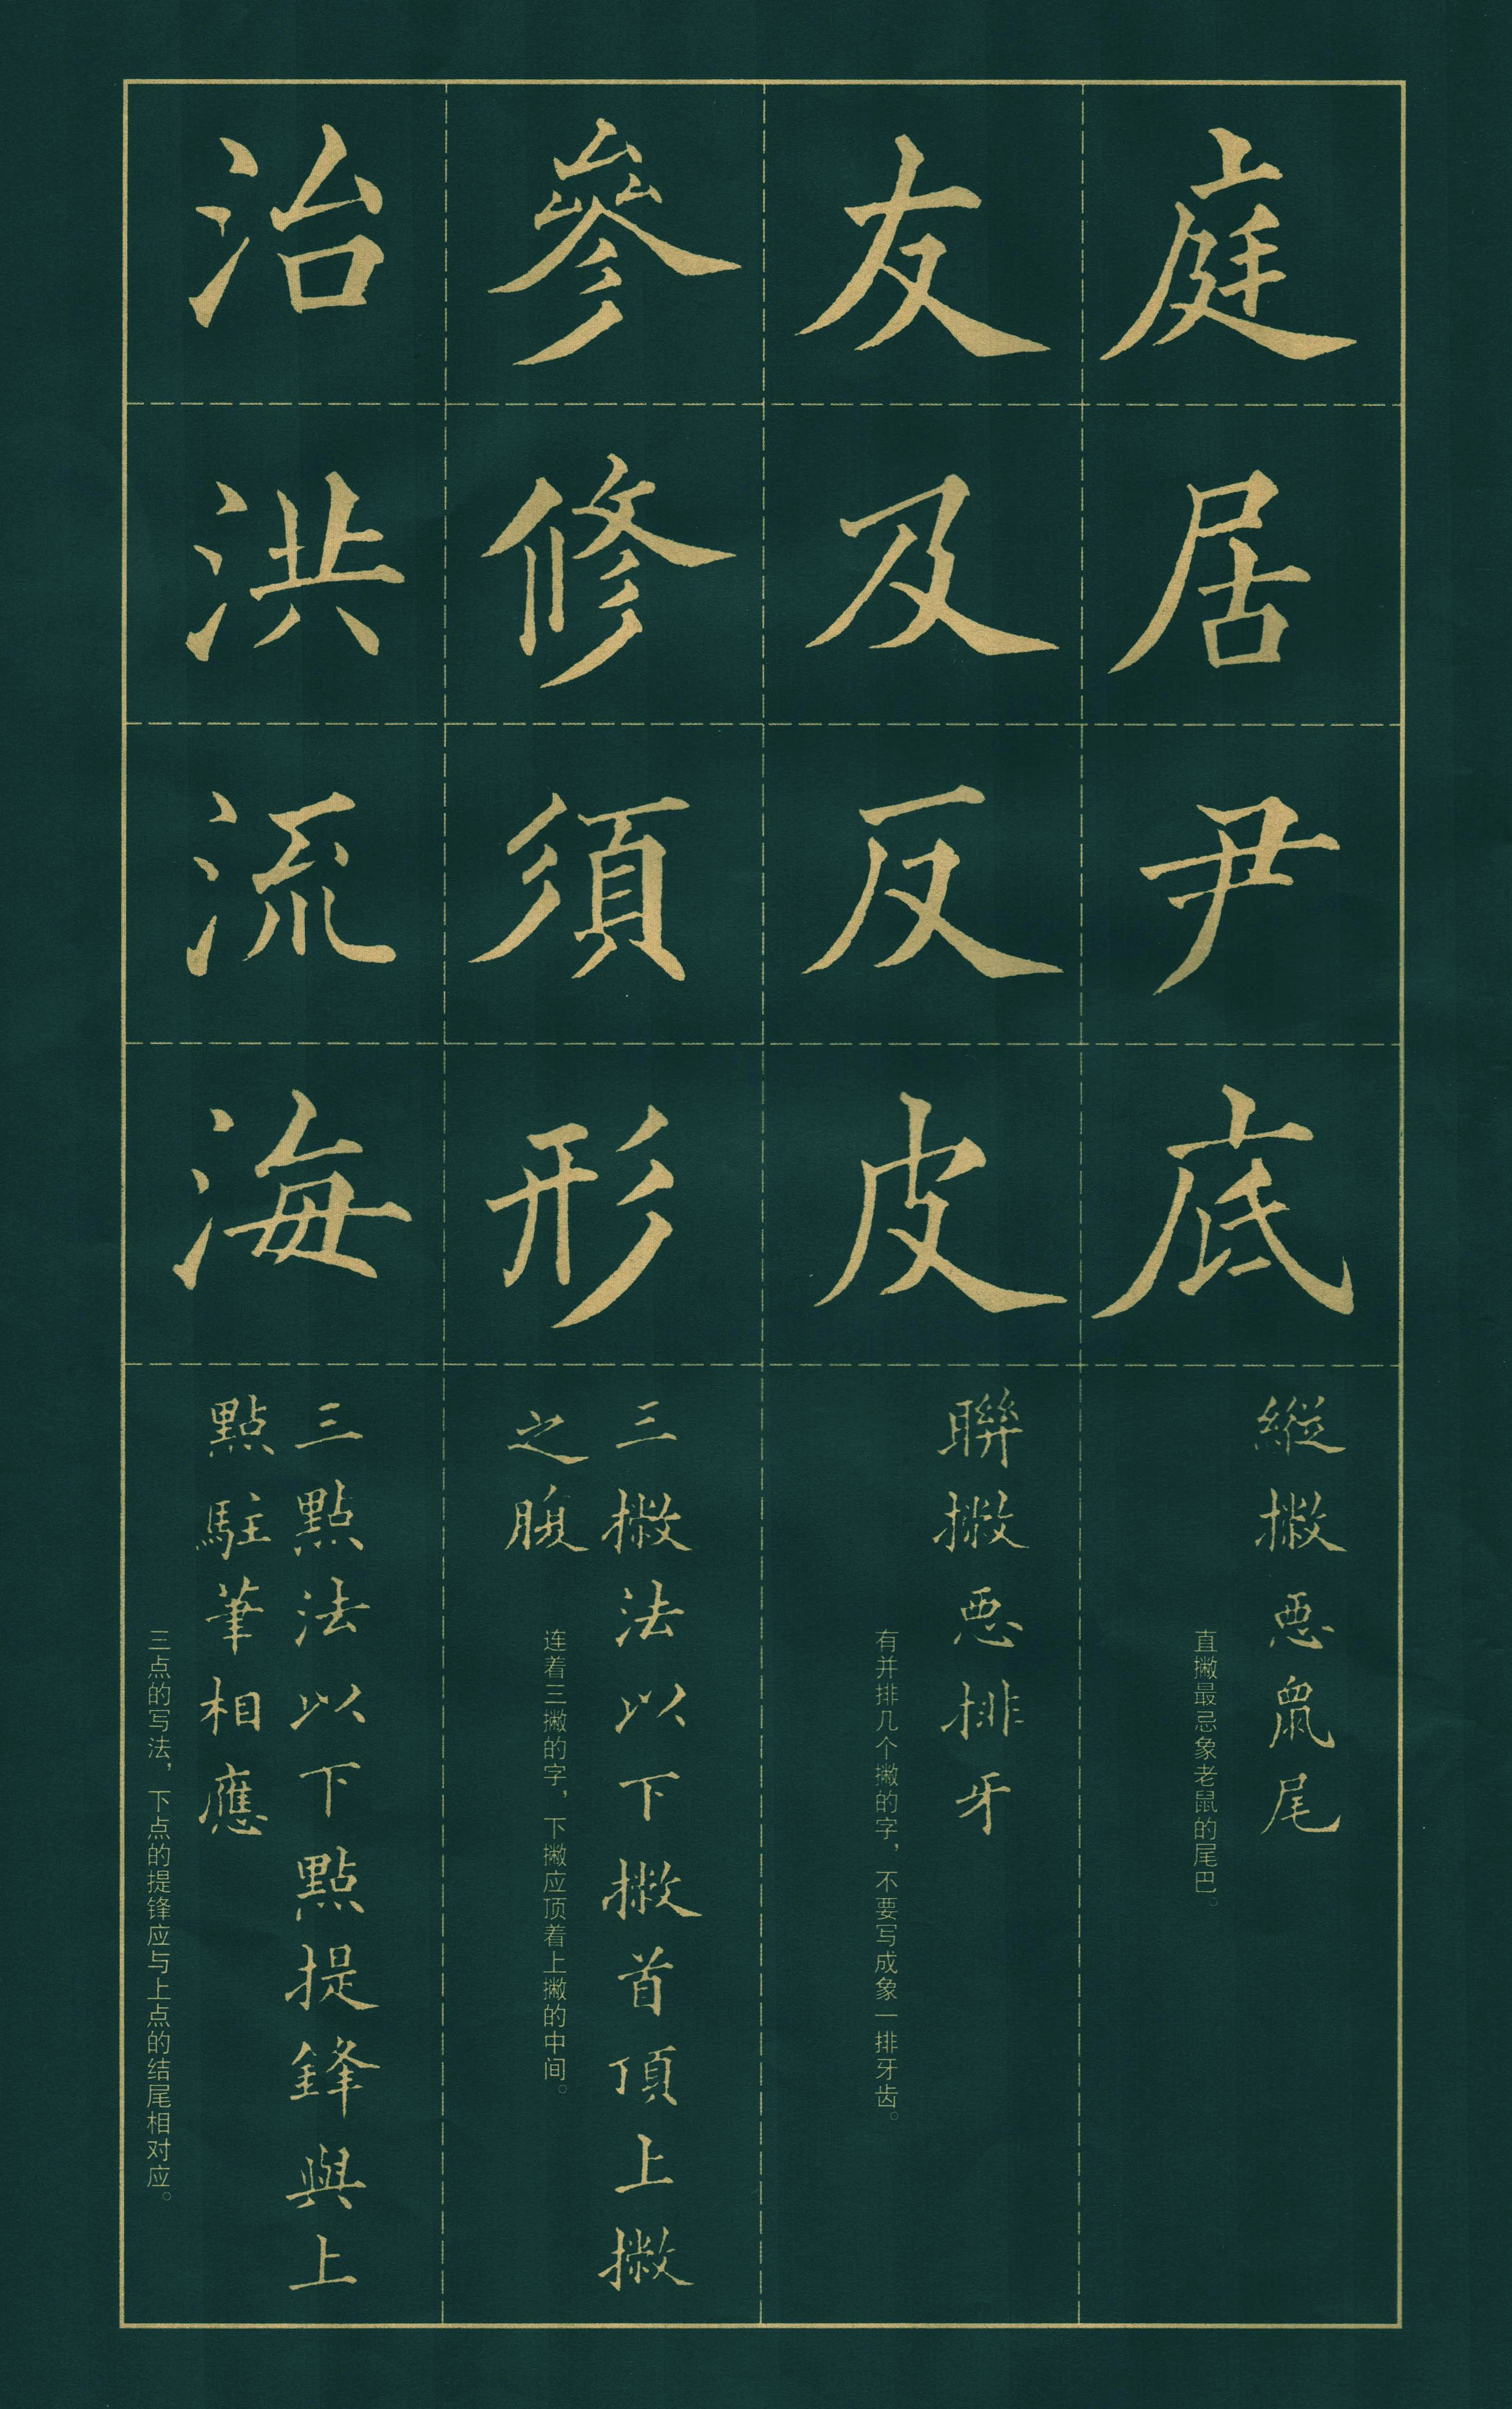 庭居尹底
縱撇惡鼠尾
直撇最忌象老鼠的尾巴。
友及反皮
聯撇惡排牙
有并排几个撇的字，不要写成象一排牙齿。
參修須形
三撇法以下撇首頂上撇
之腹
连着三撇的字，下撇应顶着上撇的中间。
治洪流海
三點法以下點提鋒與上
點駐筆相應
三点的写法，下点的提锋应与上点的结尾相对应。